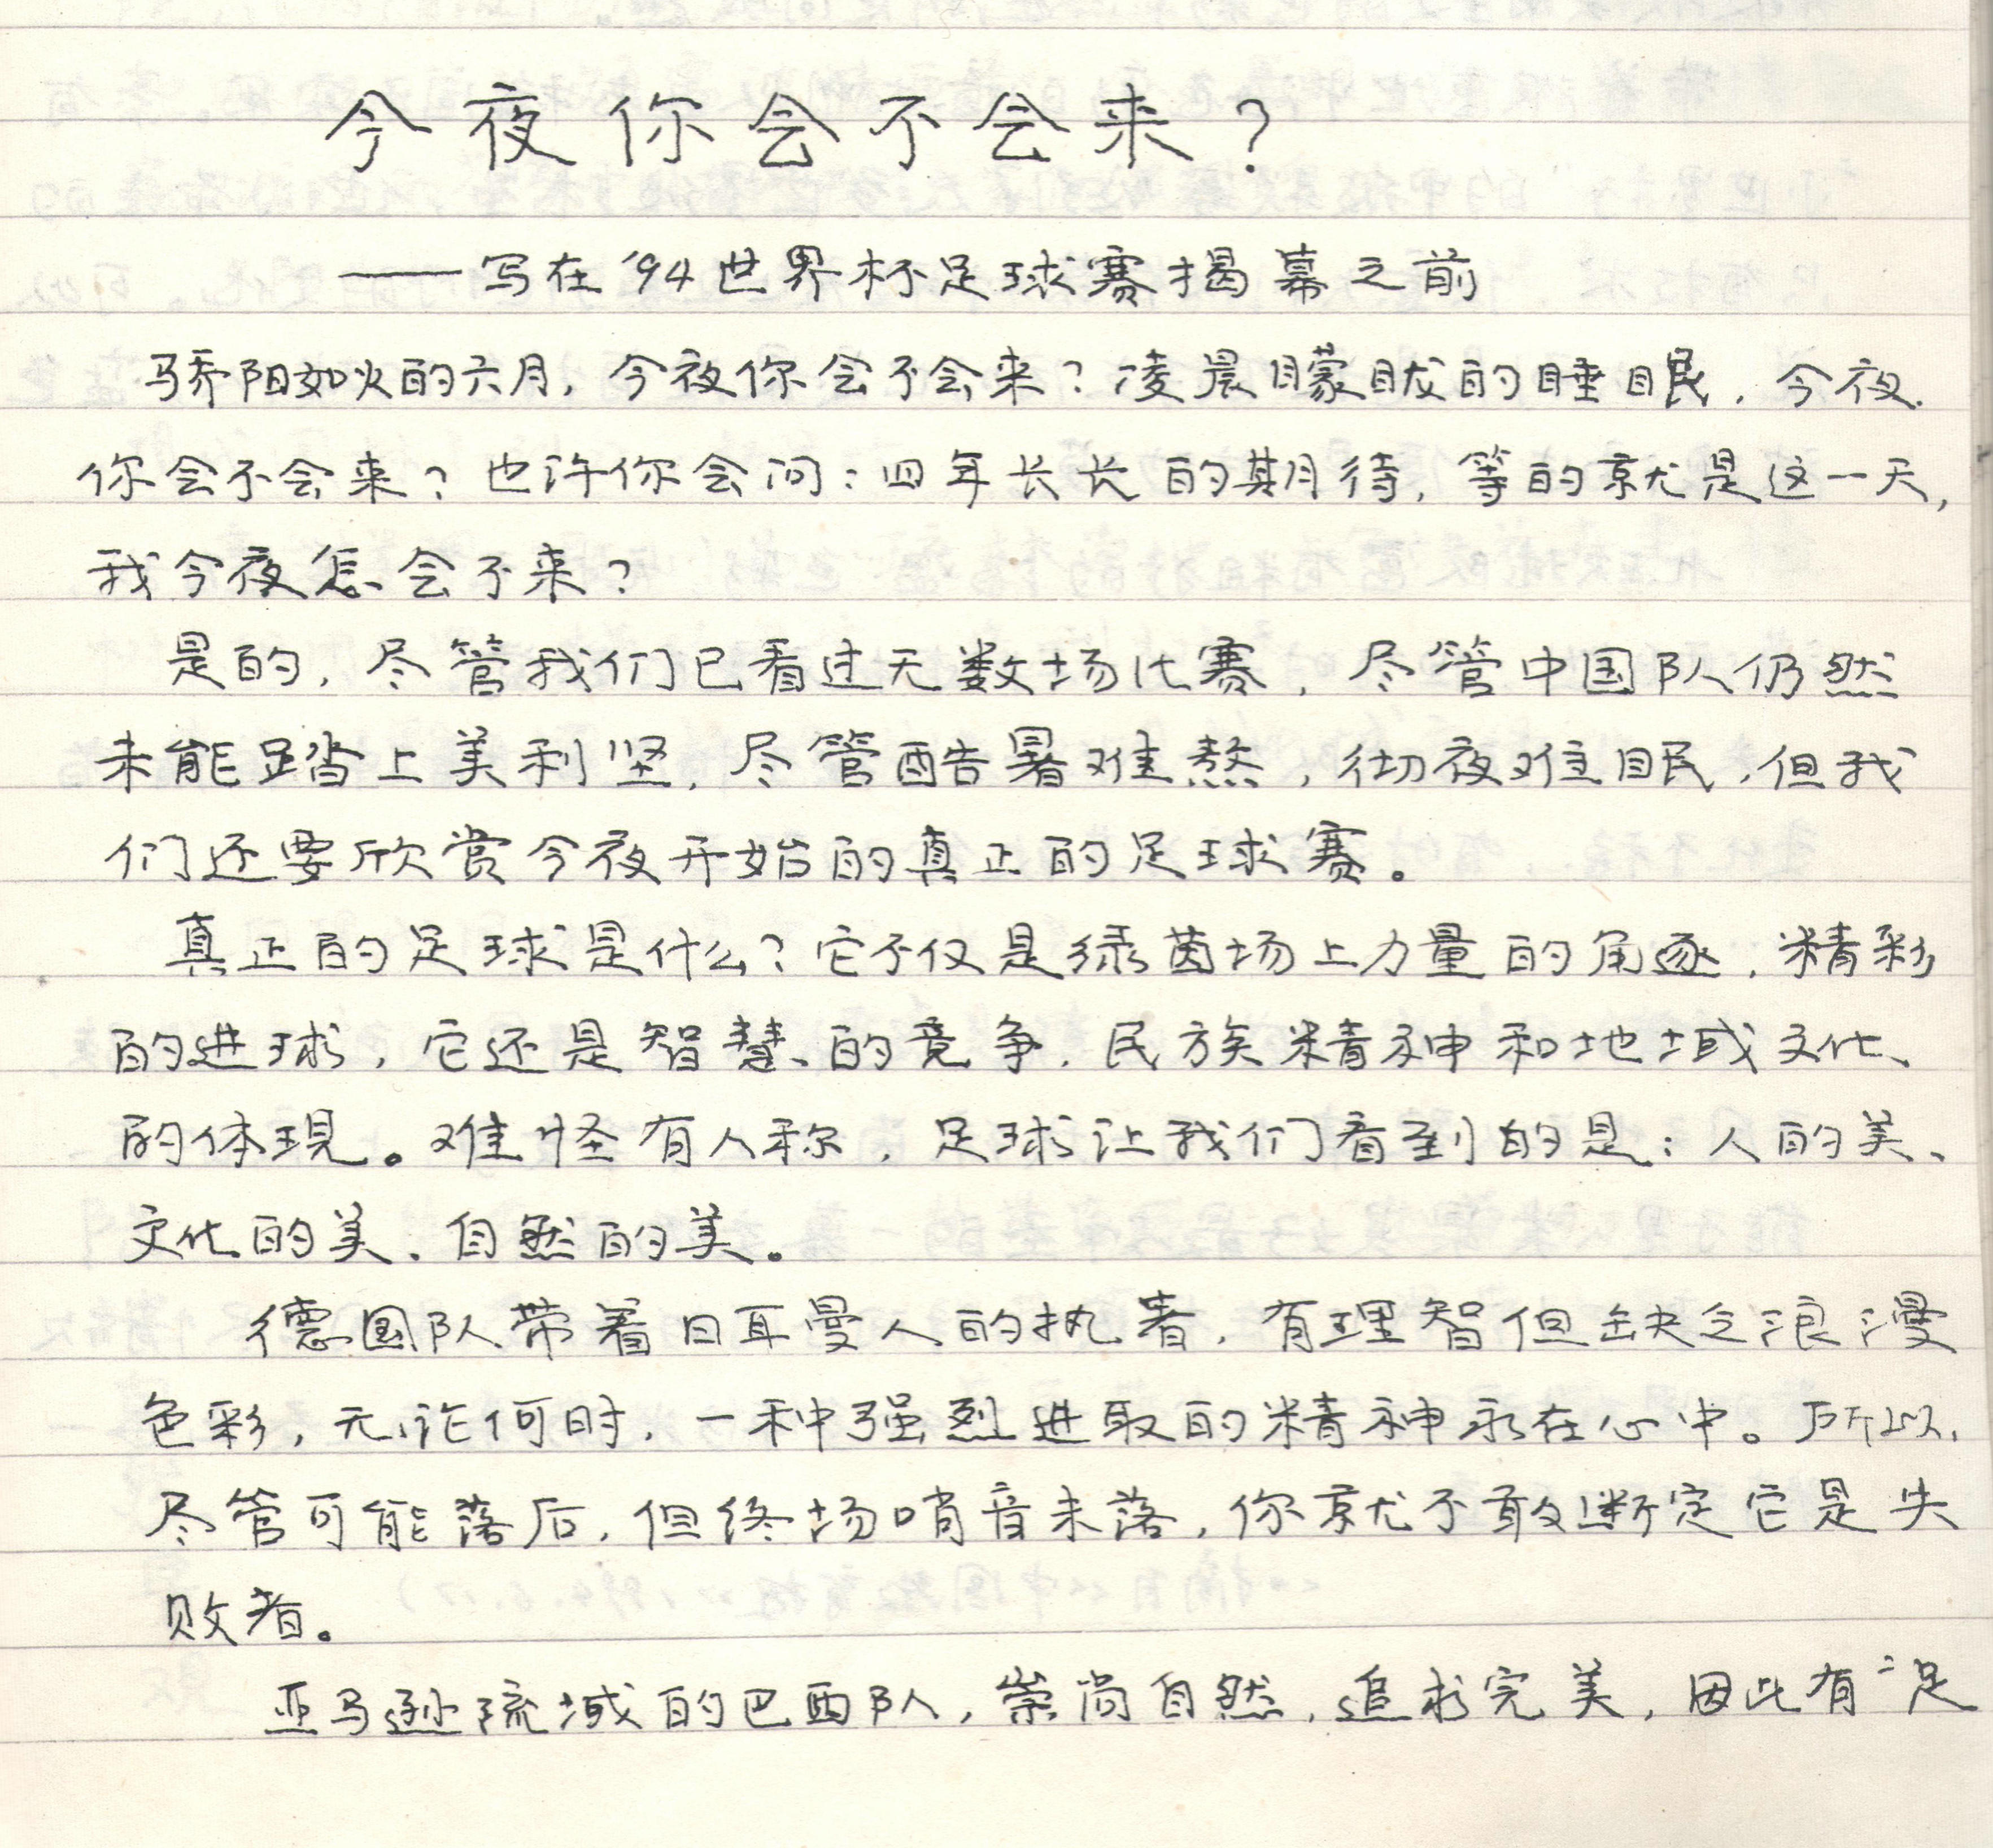 今夜你会不会来？
——写在'94世界杯足球赛揭幕之前
骄阳如火的六月，今夜你会不会来？凌晨矇眬的睡眠，今夜
你会不会来？也许你会问：四年长长的期待，等的就是这一天，
我今夜怎会不来？
是的，尽管我们已看过无数场比赛，尽管中国队仍然
未能踏上美利坚，尽管酷暑难熬，彻夜难眠，但我
们还要欣赏今夜开始的真正的足球赛。
真正的足球是什么？它不仅是绿茵场上力量的角逐，精彩
的进球，它还是智慧的竞争，民族精神和地域文化
的体现。难怪有人称，足球让我们看到的是：人的美、
文化的美、自然的美。
德国队带着日耳曼人的执着，有理智但缺乏浪漫
色彩，无论何时，一种强烈进取的精神永在心中。所以，
尽管可能落后，但终场哨音未落，你就不敢断定它是失
败者。
亚马逊流域的巴西队，崇尚自然，追求完美，因此有“足